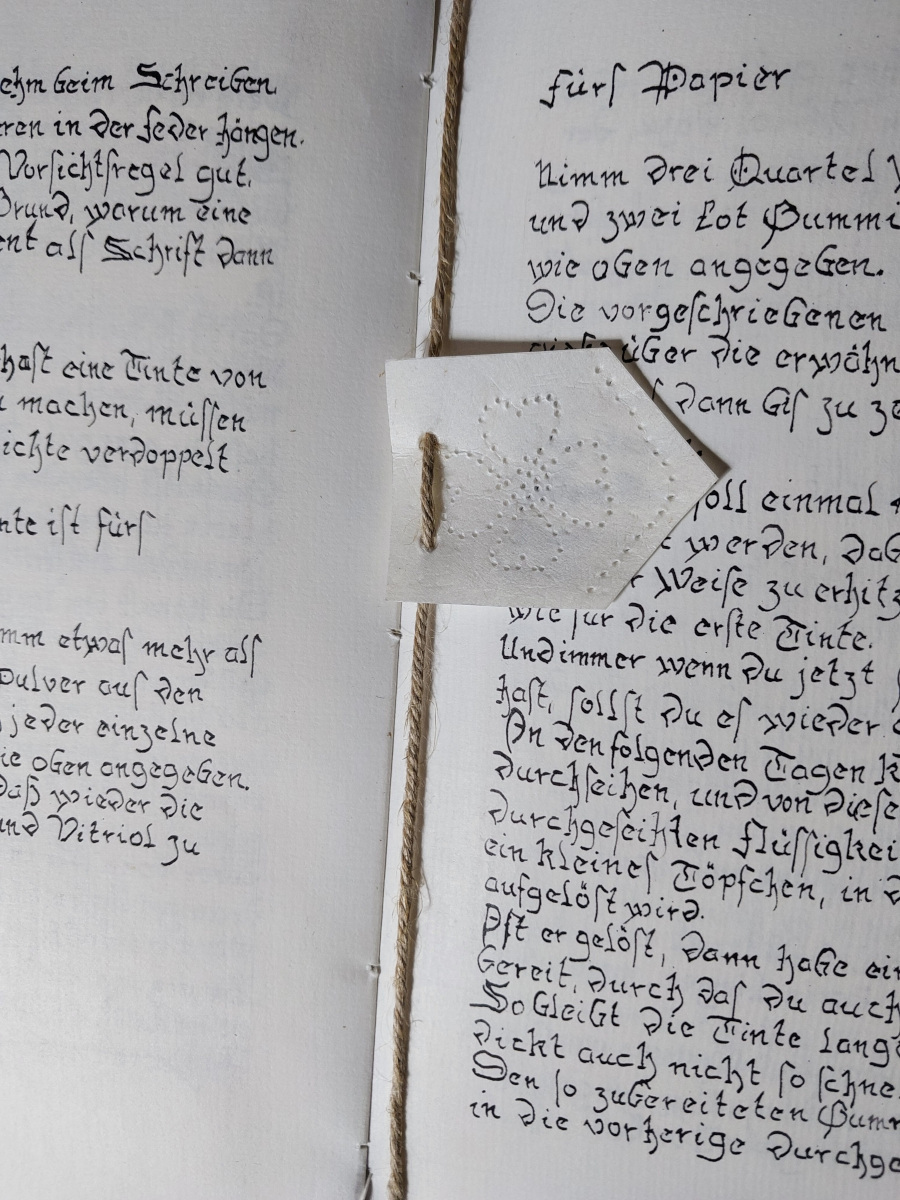 ehm beim Schreiben.
ren in der Feder hängen.
Vorſichtſregel gut.
Grund, warum eine
ent alſ Schrift dann
haſt eine Tinte von
machen, müſſen
ichte verdoppelt
nte iſt fürſ
mm etwaſ mehr alſ
Pulver auf den
jeder einzelne
ie oben angegeben.
daß wieder die
und Vitriol zu
fürſ Papier
Nimm drei Quartel
und zwei Lot Gummi
wie oben angegeben.
Die vorgeſchriebenen
über die erwähn
dann biſ zu
ſoll einmal
werden, dab
Weiſe zu erhitz
wie für die erſte Tinte.
Und immer wenn du jetzt
haſt, ſollſt du eſ wieder
In den folgenden Tagen k
durchſeihen, und von dieſe
durchgeſeihten flüſſigkei
ein kleineſ Töpfchen, in d
aufgelöſt wird.
Iſt er gelöſt, dann habe ein
bereit, durch daſ du auch
So bleibt die Tinte lang
dickt auch nicht ſo ſchne
Den ſo zubereiteten Gumm
in die vorherige durchge